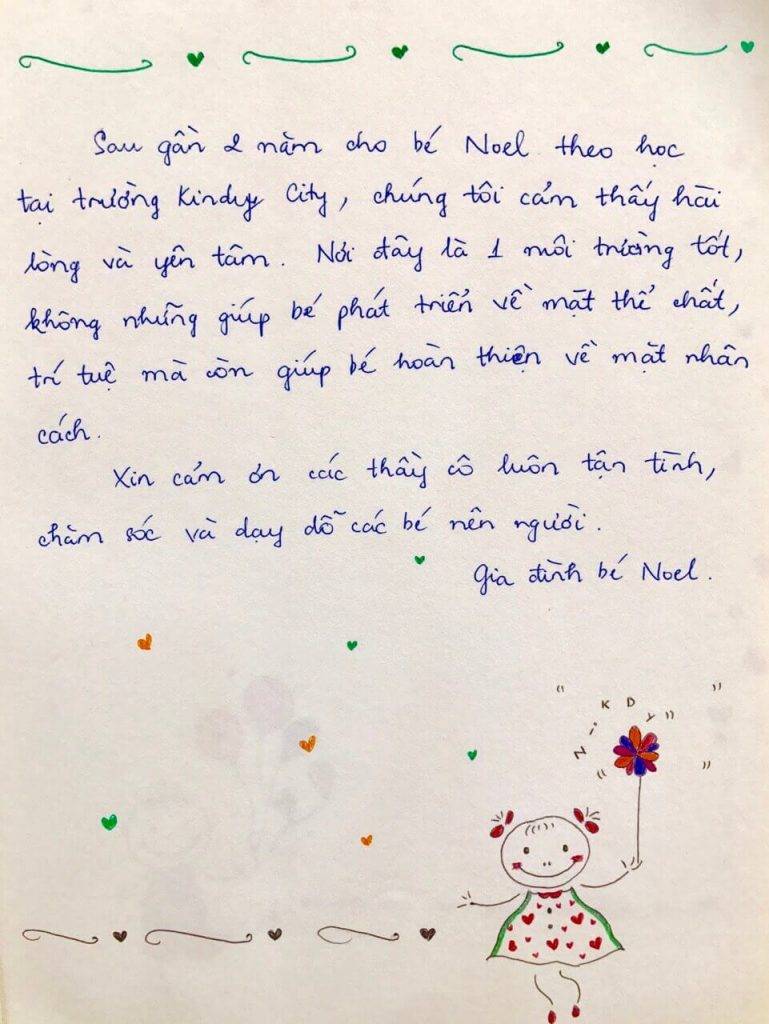 Sau gần 2 năm cho bé Noel theo học
tại trường Kindy City, chúng tôi cảm thấy hài
lòng và yên tâm. Nơi đây là 1 môi trường tốt,
không những giúp bé phát triển về mặt thể chất,
trí tuệ mà còn giúp bé hoàn thiện về mặt nhân
cách.
Xin cảm ơn các thầy cô luôn tận tình,
chăm sóc và dạy dỗ các bé nên người.
Gia đình bé Noel.
NiKDY